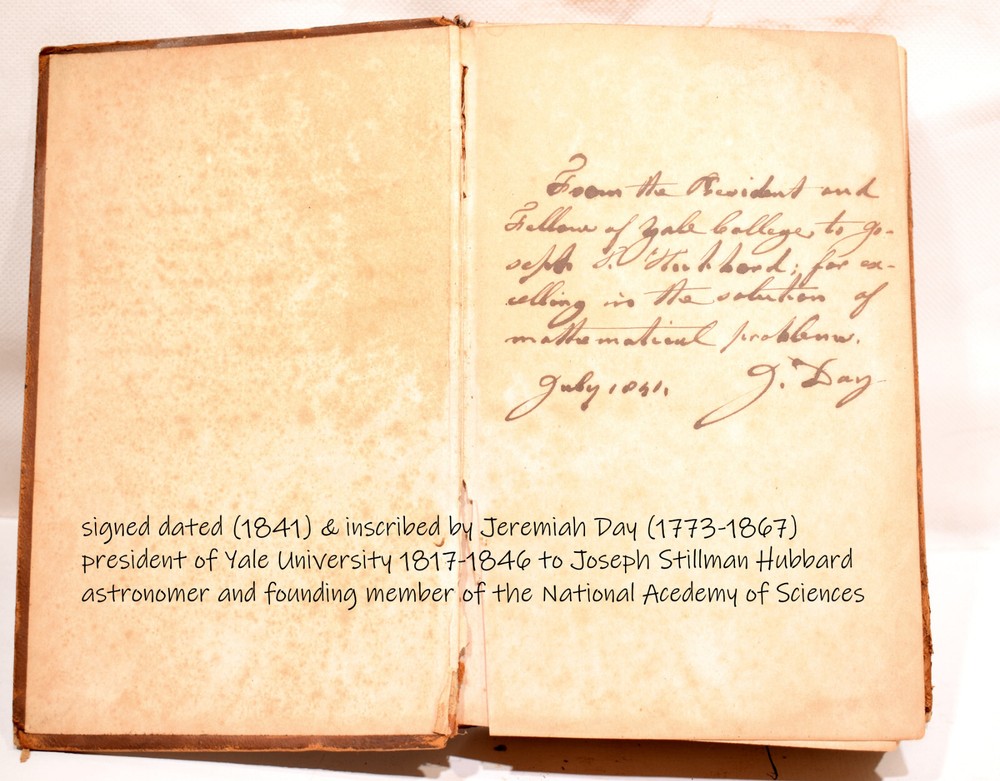 From the President and
Fellows of Yale College, to Jo-
seph S. Hubbard; for ex-
celling in the solution of
mathematical problems.
July 1841. J. Day
signed dated (1841) & inscribed by Jeremiah Day (1773-1867)
president of Yale University 1817-1846 to Joseph Stillman Hubbard
astronomer and founding member of the National Acedemy of Sciences